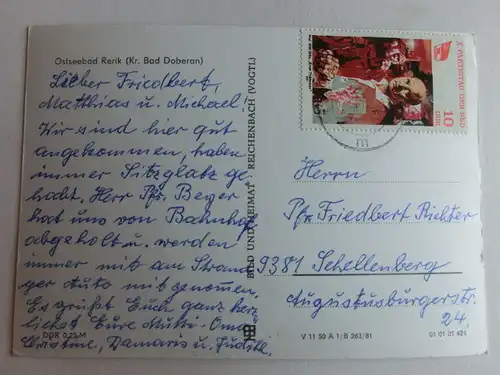 Ostseebad Rerik (Kr. Bad Doberan)
Lieber Friedbert,
Matthias u. Michael!
Wir sind hier gut
angekommen, haben
immer Sitzplatz ge-
habt. Herr Pfr. Beyer
hat uns vom Bahnhof
abgeholt u. werden
immer mit am Strand
per Auto mitgenommen.
Es grüßt Euch ganz herz-
lichst Eure Mutti-Oma
Christine, Damaris u. Judith.
DDR 0,25 M
BILD UND HEIMAT REICHENBACH (VOGTL)
X. PARTEITAG DER SED
10
DDR
Herrn
Pfr. Friedbert Richter
9381 Schellenberg
Augustusburgerstr.
24
V 11 50 A 1/B 263/81
01 01 21 421